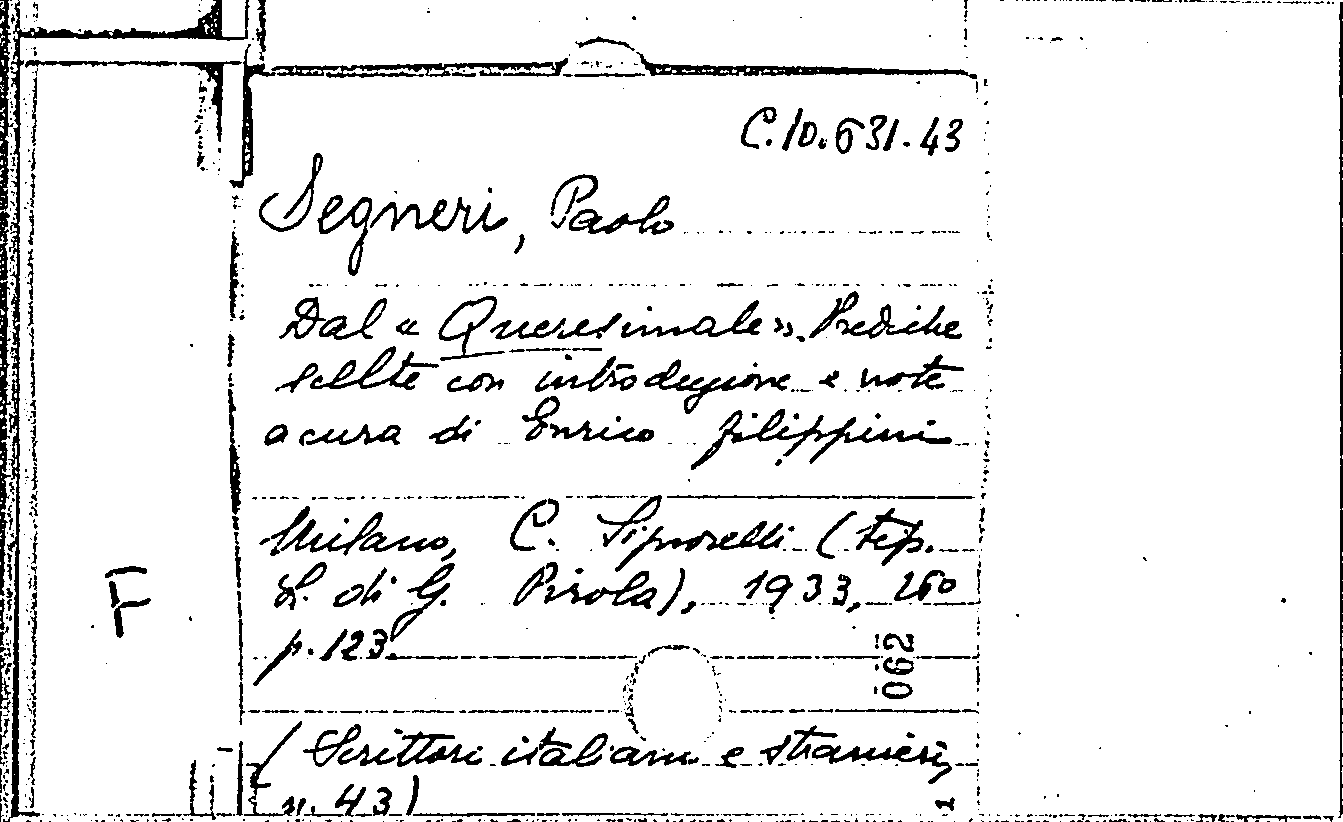 C.10.631.43
Segneri, Paolo
Dal « Queresimale ». Prediche
scelte con introduzione e note
a cura di Enrico Filippini
Milano, C. Signorelli (tip.
L. di G. Pirola), 1933, 16°
p. 123.
062
(Scrittori italiani e stranieri,
n. 43)
1
F